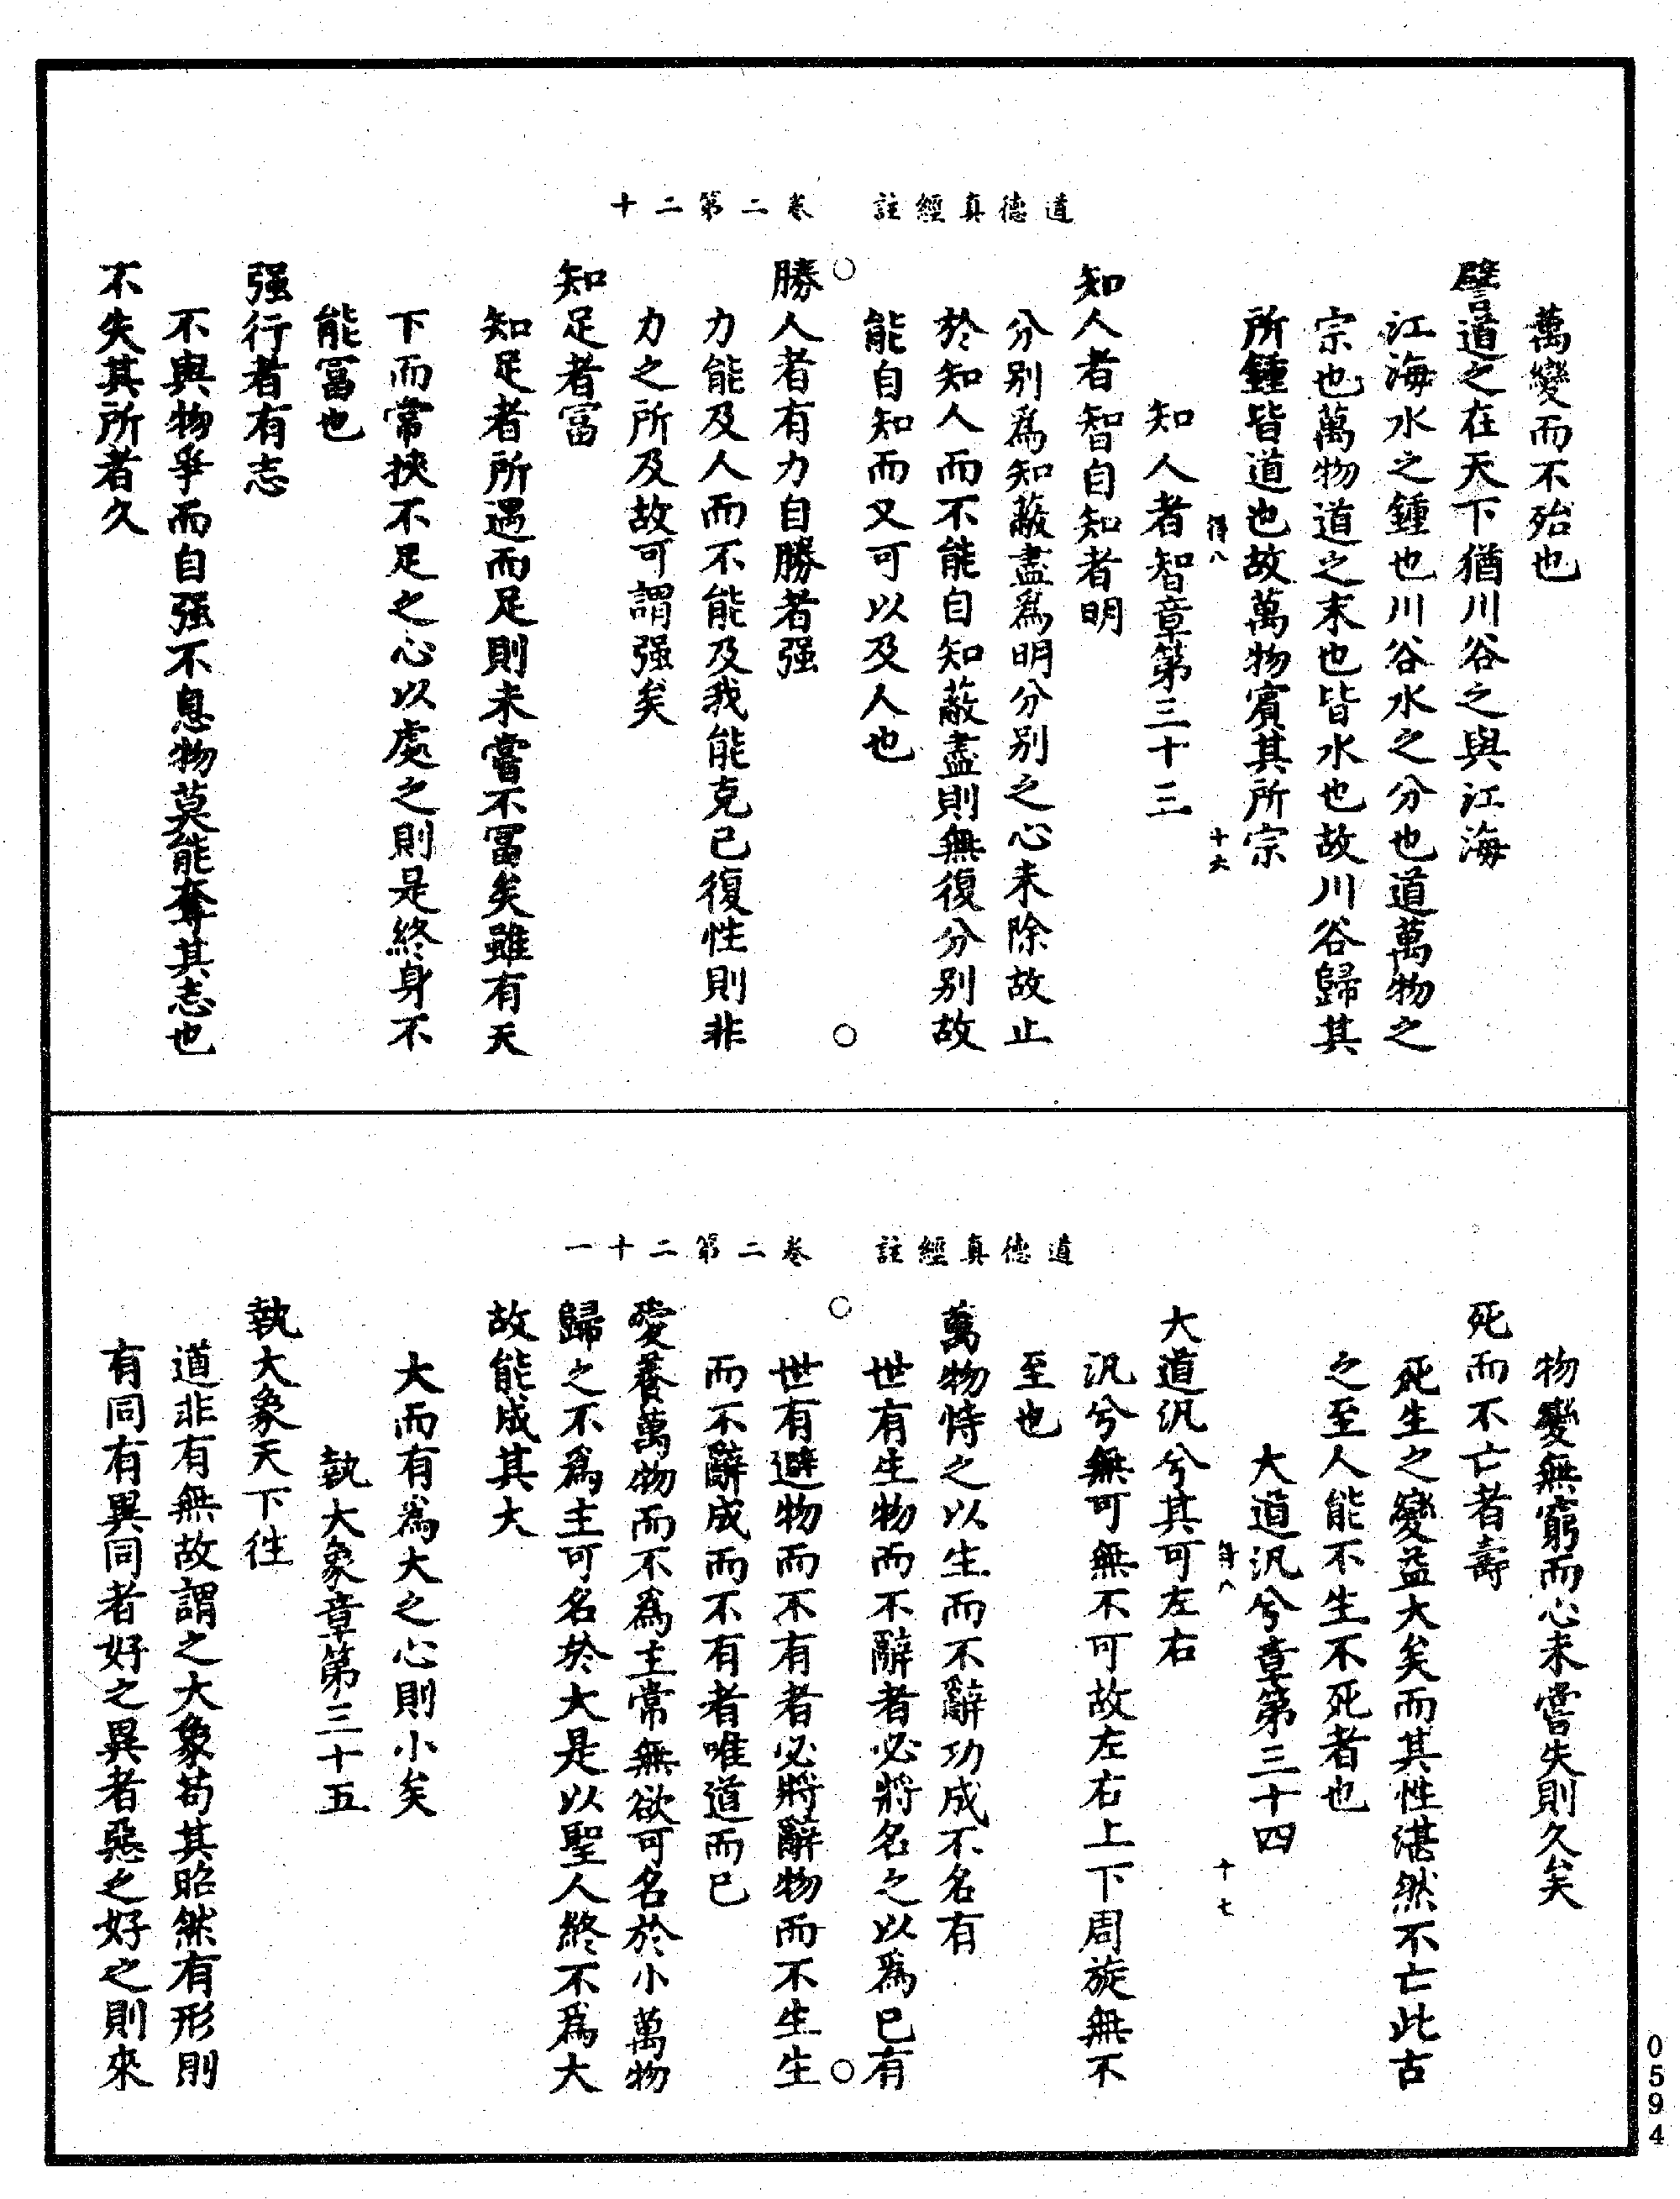 道德真經註　卷二第二十
萬變而不殆也
譬道之在天下猶川谷之與江海
江海水之鍾也川谷水之分也道萬物之
宗也萬物道之末也皆水也故川谷歸其
所鍾皆道也故萬物賓其所宗
得八　十六
知人者智章第三十三
知人者智自知者明
分别爲知蔽盡爲明分别之心未除故止
於知人而不能自知蔽盡則無復分别故
能自知而又可以及人也
勝人者有力自勝者强
力能及人而不能及我能克已復性則非
力之所及故可謂强矣
知足者富
知足者所遇而足則未嘗不富矣雖有天
下而常挾不足之心以處之則是終身不
能富也
强行者有志
不與物爭而自强不息物莫能奪其志也
不失其所者久
道德真經註　卷二第二十一
物變無窮而心未嘗失則久矣
死而不亡者壽
死生之變益大矣而其性湛然不亡此古
之至人能不生不死者也
大道汎兮章第三十四
得八　十七
大道汎兮其可左右
汎兮無可無不可故左右上下周旋無不
至也
萬物恃之以生而不辭功成不名有
世有生物而不辭者必將名之以爲已有
世有避物而不有者必將辭物而不生生
而不辭成而不有者唯道而已
愛養萬物而不爲主常無欲可名於小萬物
歸之不爲主可名於大是以聖人終不爲大
故能成其大
大而有爲大之心則小矣
執大象章第三十五
執大象天下往
道非有無故謂之大象苟其昭然有形則
有同有異同者好之異者惡之好之則來
0594